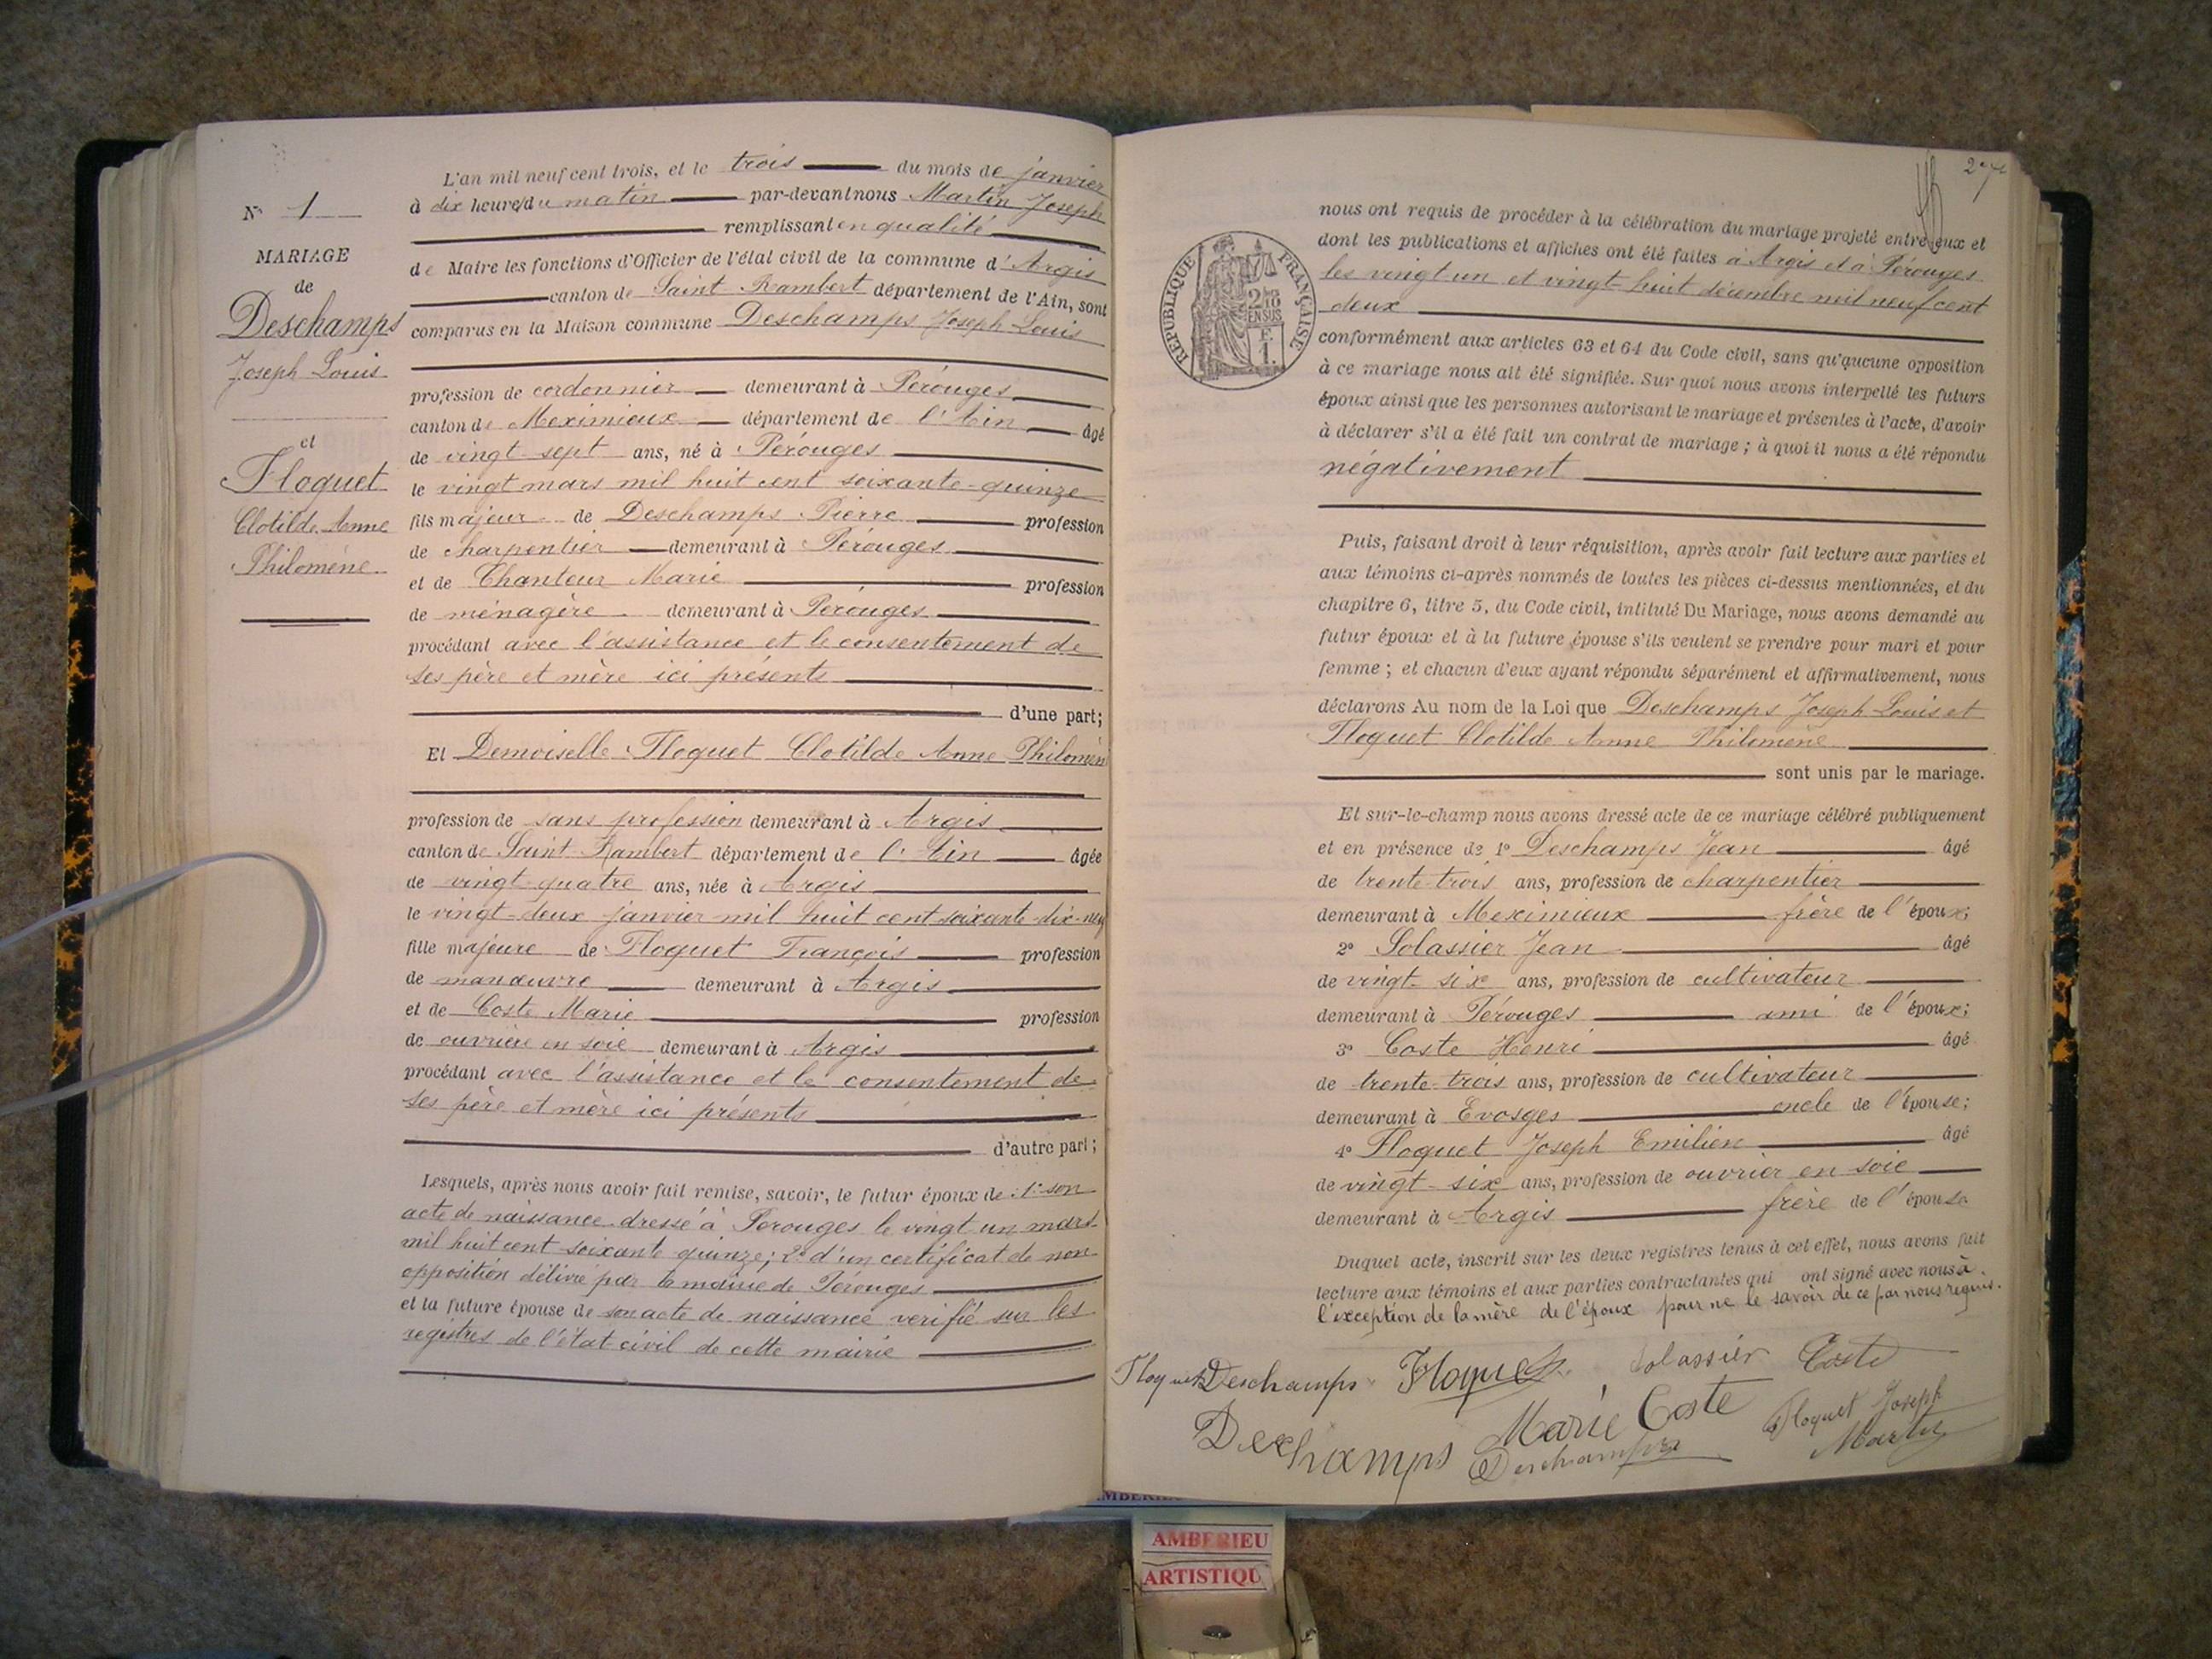 N° 1
MARIAGE
de
Deschamps
Joseph Louis
et
Floquet
Clotilde Anne
Philomène
L'an mil neuf cent trois, et le trois du mois de janvier
à dix heures du matin par-devant nous Martin Joseph
remplissant en qualité
de Maire les fonctions d'Officier de l'état civil de la commune d'Argis
canton de Saint Rambert département de l'Ain, sont
comparus en la Maison commune Deschamps Joseph Louis
profession de cordonnier demeurant à Pérouges
canton de Meximieux département de l'Ain âgé
de vingt-sept ans, né à Pérouges
le vingt mars mil huit cent soixante-quinze
fils majeur de Deschamps Pierre profession
de charpentier demeurant à Pérouges
et de Chanteur Marie profession
de ménagère demeurant à Pérouges
procédant avec l'assistance et le consentement de
ses père et mère ici présents
d'une part;
Et Demoiselle Floquet Clotilde Anne Philomèn
profession de sans profession demeurant à Argis
canton de Saint-Rambert département de l'Ain âgée
de vingt-quatre ans, née à Argis
le vingt-deux janvier mil huit cent soixante-dix-neuf
fille majeure de Floquet François profession
de manœuvre demeurant à Argis
et de Coste Marie profession
de ouvrière en soie demeurant à Argis
procédant avec l'assistance et le consentement de
ses père et mère ici présents
d'autre part;
Lesquels, après nous avoir fait remise, savoir, le futur époux de : 1° son
acte de naissance dressé à Pérouges le vingt un mars
mil huit cent soixante quinze; 2° d'un certificat de non
opposition délivré par le maire de Pérouges
et la future épouse de son acte de naissance vérifié sur les
registres de l'état-civil de cette mairie
27
RÉPUBLIQUE FRANÇAISE
2/10 EN SUS
F. 1.
nous ont requis de procéder à la célébration du mariage projeté entre eux et
dont les publications et affiches ont été faites à Argis et à Pérouges
les vingt-un et vingt-huit décembre mil neuf cent
deux
conformément aux articles 63 et 64 du Code civil, sans qu'aucune opposition
à ce mariage nous ait été signifiée. Sur quoi nous avons interpellé les futurs
époux ainsi que les personnes autorisant le mariage et présentes à l'acte, d'avoir
à déclarer s'il a été fait un contrat de mariage ; à quoi il nous a été répondu
négativement
Puis, faisant droit à leur réquisition, après avoir fait lecture aux parties et
aux témoins ci-après nommés de toutes les pièces ci-dessus mentionnées, et du
chapitre 6, titre 5, du Code civil, intitulé Du Mariage, nous avons demandé au
futur époux et à la future épouse s'ils veulent se prendre pour mari et pour
femme ; et chacun d'eux ayant répondu séparément et affirmativement, nous
déclarons Au nom de la Loi que Deschamps Joseph Louis et
Floquet Clotilde Anne Philomène
sont unis par le mariage.
Et sur-le-champ nous avons dressé acte de ce mariage célébré publiquement
et en présence de 1° Deschamps Jean âgé
de trente-trois ans, profession de charpentier
demeurant à Meximieux frère de l'époux;
2° Solassier Jean âgé
de vingt-six ans, profession de cultivateur
demeurant à Pérouges ami de l'époux;
3° Coste Henri âgé
de trente-trois ans, profession de cultivateur
demeurant à Evosges oncle de l'épouse;
4° Floquet Joseph Emilien âgé
de vingt-six ans, profession de ouvrier en soie
demeurant à Argis frère de l'épouse
Duquel acte, inscrit sur les deux registres tenus à cet effet, nous avons fait
lecture aux témoins et aux parties contractantes qui ont signé avec nous à
l'exception de la mère de l'époux pour ne le savoir de ce par nous requis.
Floquet Deschamps Floquet Solassier Coste
Deschamps Marie Coste Floquet Joseph
Deschamps Martin
AMBERIEU
ARTISTIQU